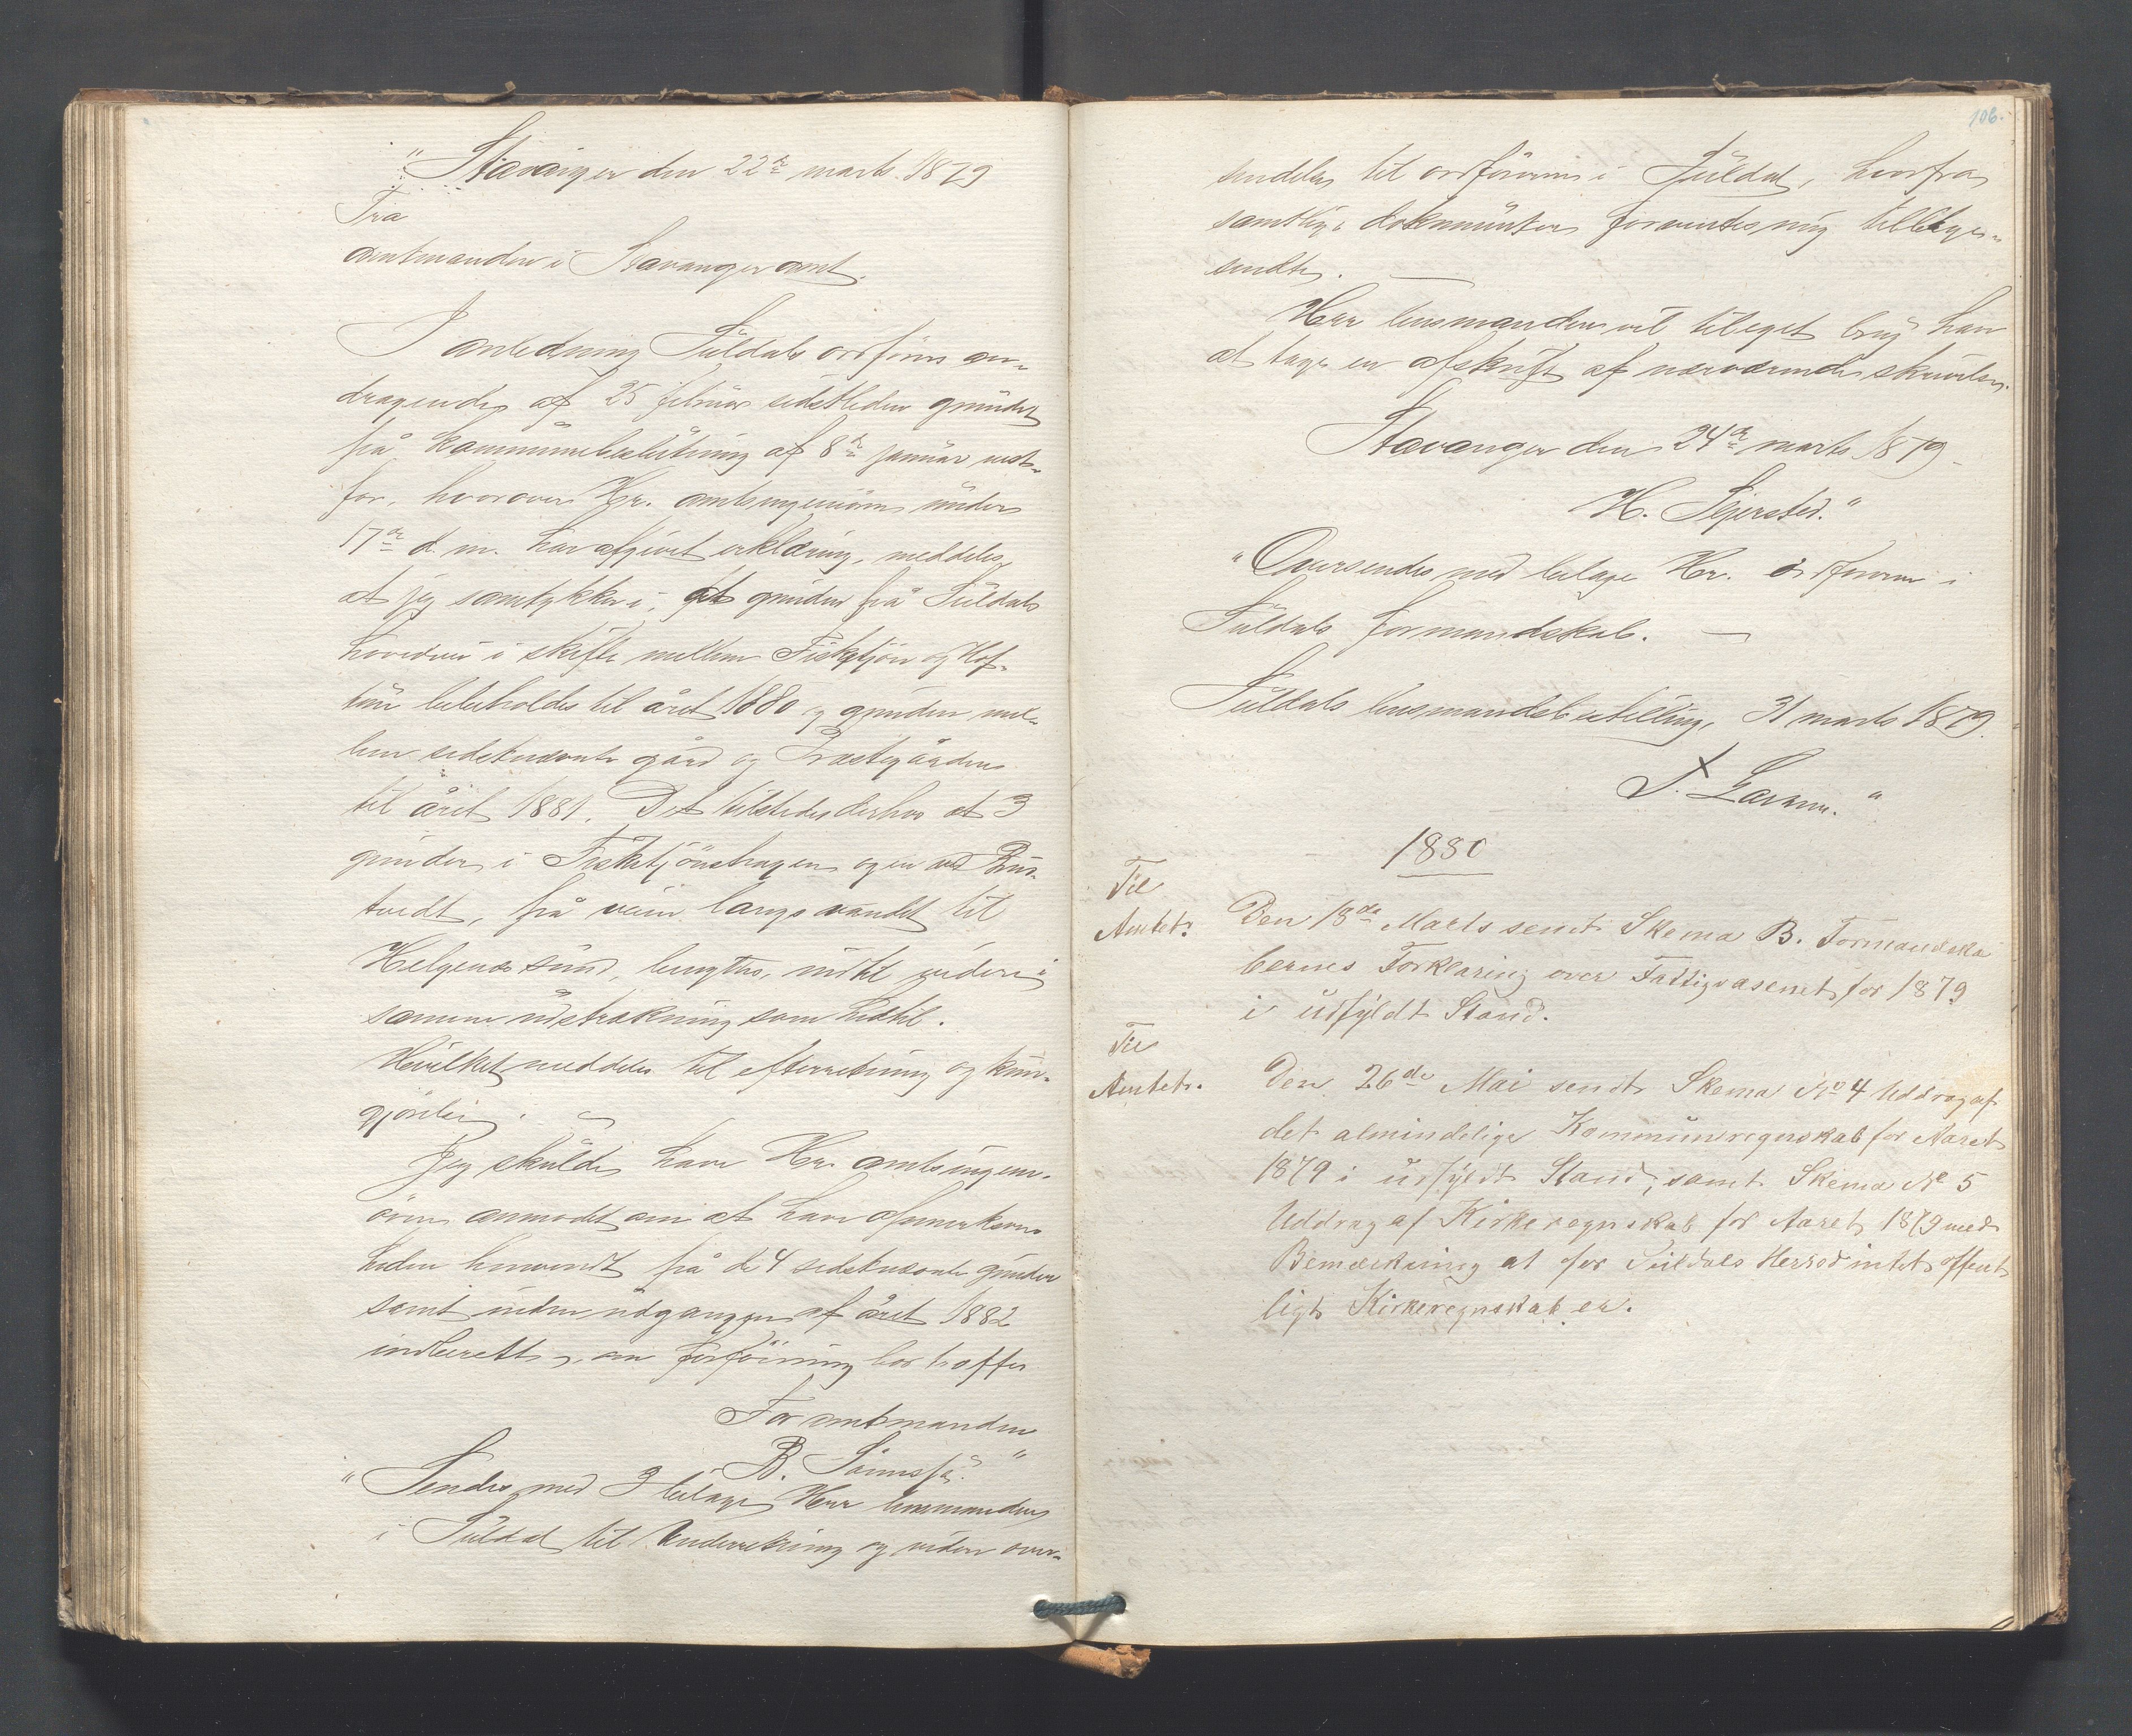 "Stavanger den 22de marts 1879
Fra
amtmanden i Stavanger amt.
I anledning Suldals ordförers an-
dragende af 25 februar sidstleden grundet
på kommunebeslutning af 8de januar nest-
før, hvorover Hr. amtsingeniøren under
17de d. m. har afgivet erklæring, meddeles,
at jeg samtykker i, at grinden på Suldals
hovedvei i skiftet mellem Fisketjön og Hof-
tun bibeholdes til året 1880 og grinden mel-
lem sidstnævnte gård og Præstegården
til året 1881. Det tilstedes derhos at 3
grinder i Fisketjönshagen og en ved
tvedt, på veien langs vandet til
Helgenæssund, benyttes, indtil videre i
samme udstrækning som hidtil.
Hvilket meddeles til efterretning og kund-
gjörelse.
Jeg skulde have Hr. amtsingeni-
ören anmodet om at have opmerksom-
heden henvendt på de 4 sidstnævnte grinder
samt inden udgangen af året 1882
indberette, om forföining bör træffes
For amtmanden
B.
"Sendes med 3 bilage Herr lensmanden
i Suldal til underretning og videre over-
106.
sendelse til ordföreren i Suldal, hvorfra
samtlige dokumenter forventes mig tilbage-
sendte.
Herr lensmanden vil til eget brug have
at tage en afskrift af nærværende skrivelse.
Stavanger den 24de marts 1879
H. Gjersted."
"Oversendes med bilage Hr. ordföreren i
Suldals formandskab.
Suldals lensmandsbestilling, 31 marts 1879.
T. Larsen."
1880
Til
Amtet.
Den 18de Marts sendt Skema B. Formandska
bernes Forklaring over Fattigvæsenet for 1879
i udfyldt Stand.
Til
Amtet.
Den 26de Mai sendt Skema No 4 Uddrag af
det almindelige Kommuneregnskab for Aaret
1879 i udfyldt Stand, samt Skema No 5
Uddrag af Kirkeregnskab for Aaret 1879 med
Bemærkning at for Suldals Herred intet offent
ligt Kirkeregnskab er.